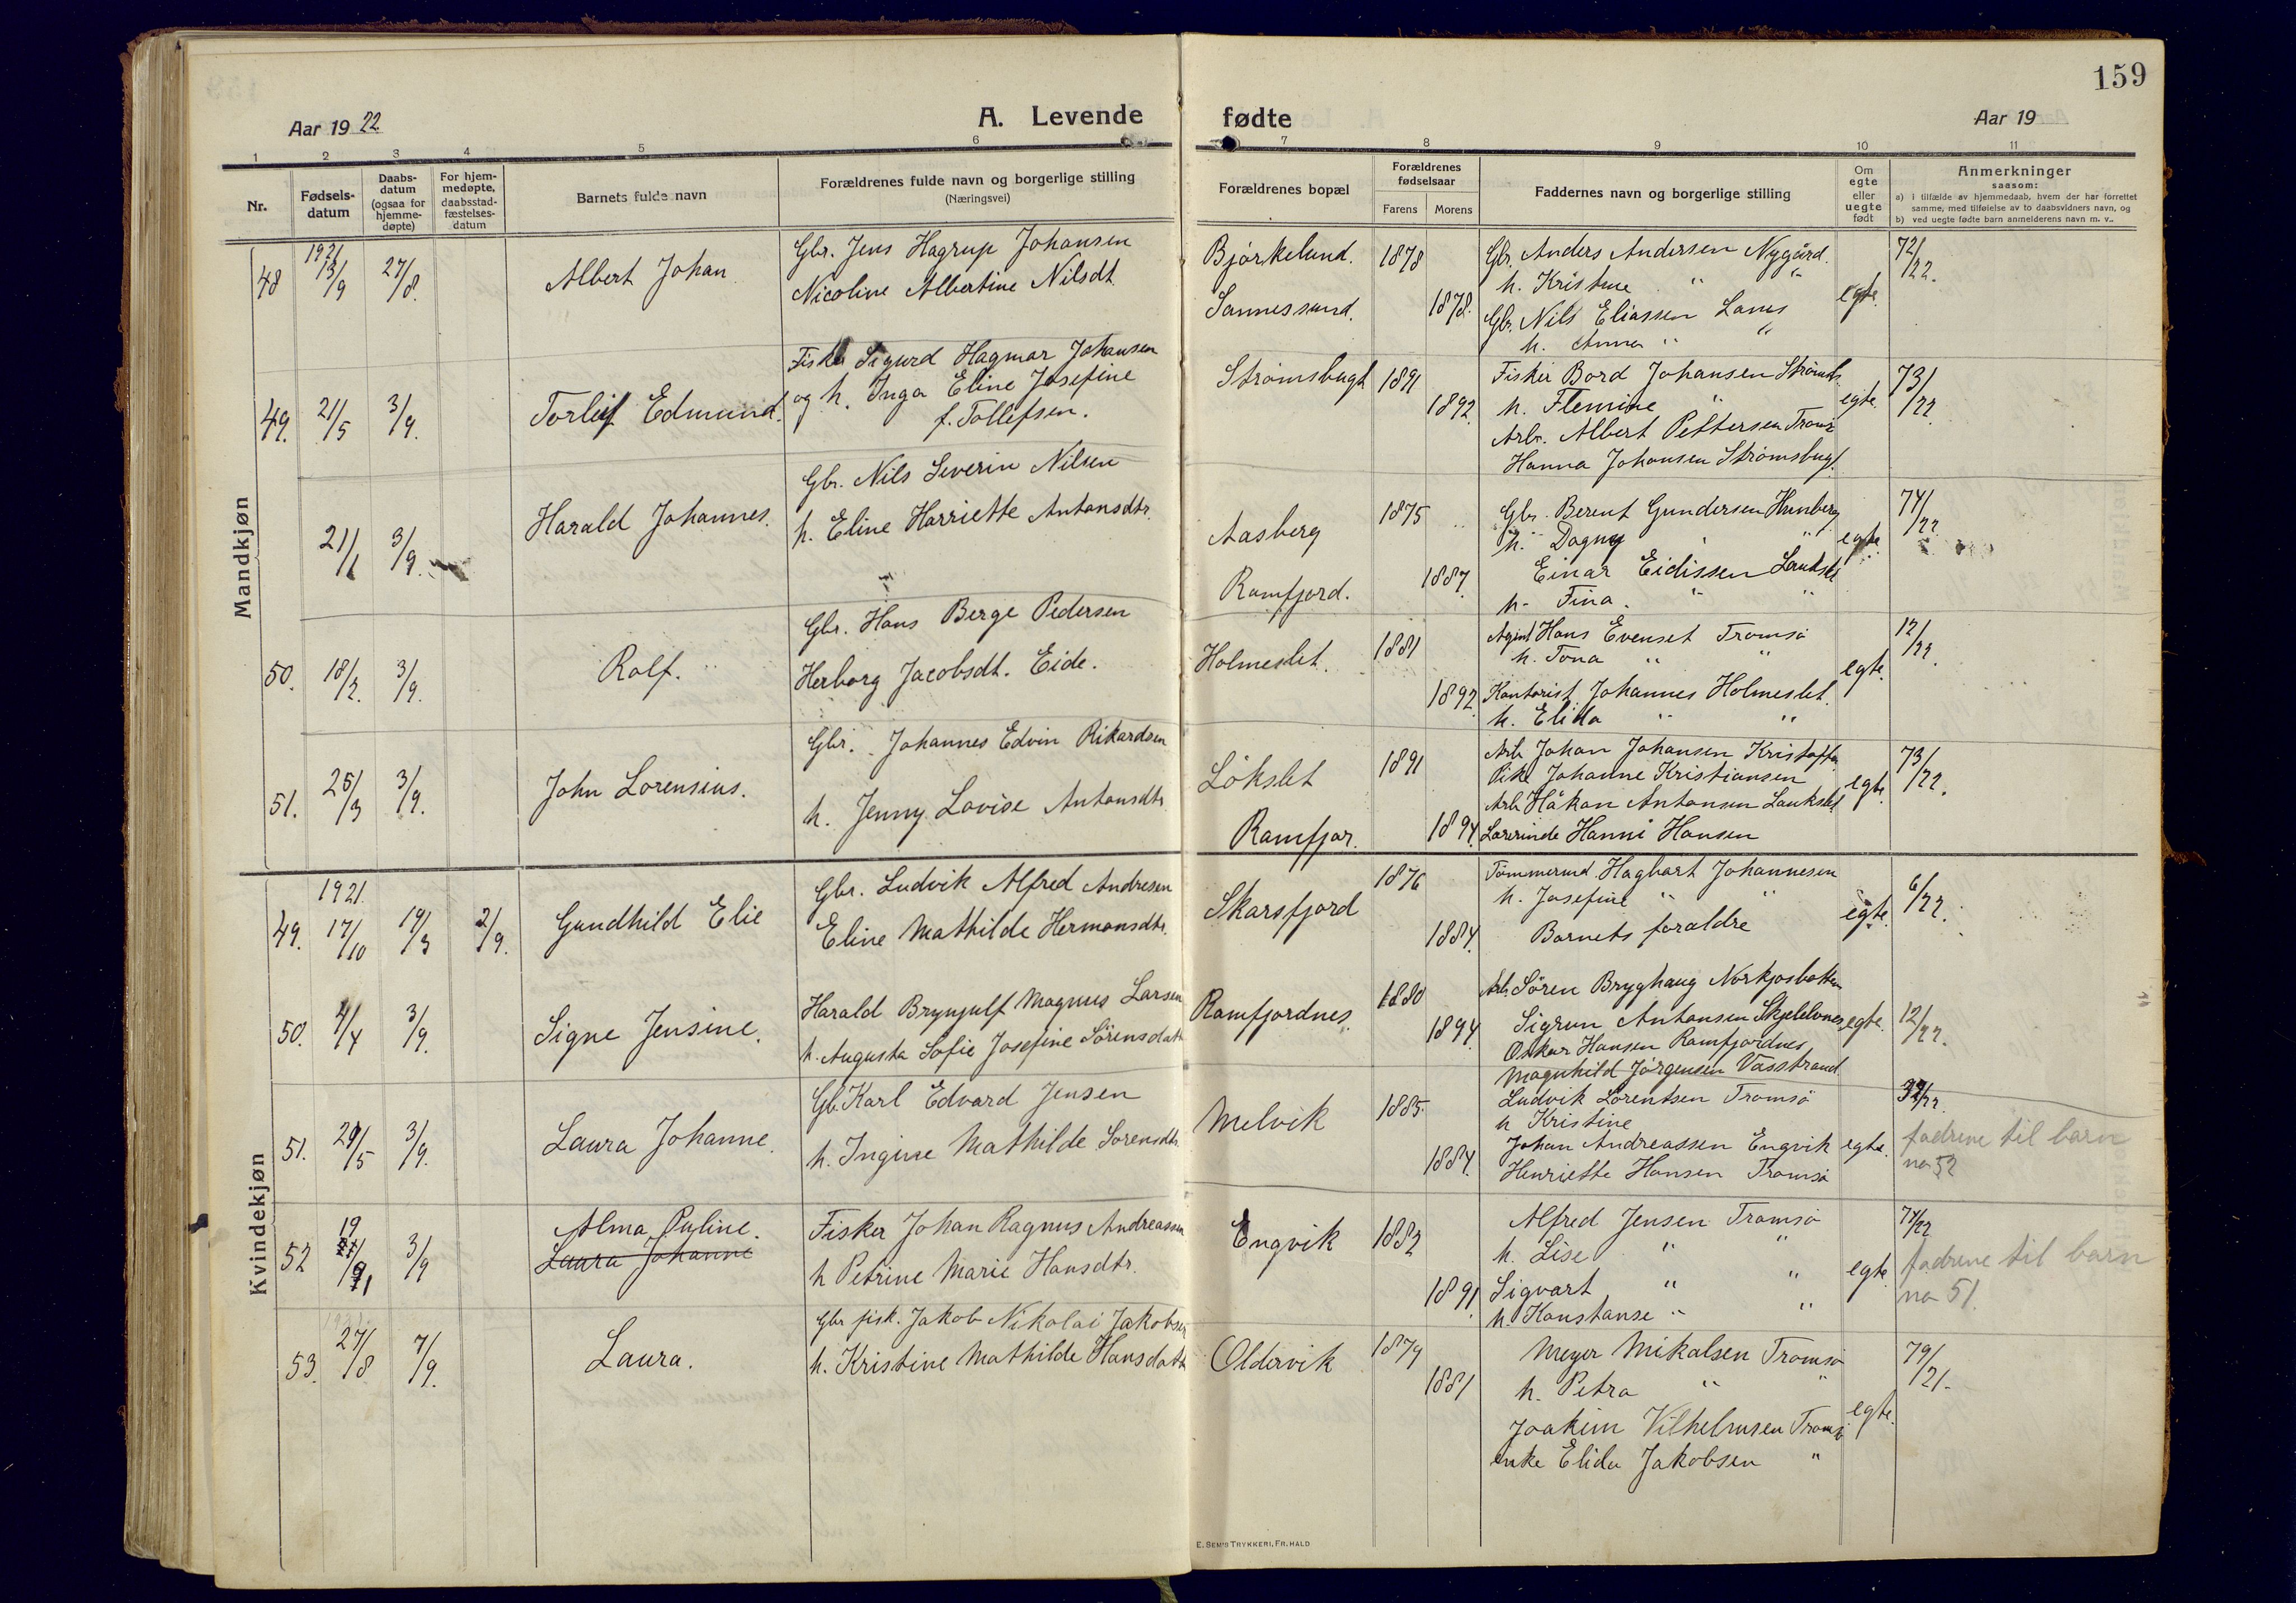 159
Aar 1922
A. Levende fødte
Aar 19
1 2 3 4 5 6 7 8 9 10 11
Nr.
Fødsels-
datum
Daabs-
datum
(ogsaa for
hjemme-
døpte)
For hjem-
medøpte,
daabsstad-
fæstelses-
datum
Barnets fulde navn
Forældrenes fulde navn og borgerlige stilling
(Næringsvei)
Forældrenes bopæl
Forældrenes
fødselsaar
Farens Morens
Faddernes navn og borgerlige stilling
Om
egte
eller
uegte
født
Anmerkninger
saasom:
a) i tilfælde av hjemmedaab, hvem der har forrettet
samme, med tilføielse av to daabsvidners navn, og
b) ved uegte fødte barn anmelderens navn m. v..
Mandkjøn
48 1921 13/9 27/8. Albert Johan
Gbr. Jens Hagrup Johansen
Nicoline Albertine Nilsdt.
Bjørkelund.
Sannessund.
1878
1878.
Gbr. Anders Andersen Nygård.
h. Kristine " "
Gbr. Nils Eliassen Lanes
h. Anna " "
egte.
72/22.
49. 21/5 3/9. Torleif Edmund.
Fisker Sigurd Hagmar Johansen
og h. Inga Eline Josefine
f. Tollefsen.
Strømsbugt
1891
1892.
Fisker Bord Johansen Strømsb.
h. Flemine "
Arb. Albert Pettersen Tromsø
Hanna Johansen Strømsbugt.
egte.
73/22.
21/1 3/9. Harald Johannes.
Gbr. Nils Severin Nilsen
h. Eline Harriette Antonsdtr.
Aasberg
Ramfjord.
1875
1887.
Gbr. Berent Gundersen Hunberg
h. Dagny " "
Einar Eidissen Lauksl.
h. Tina. " "
egte.
74/22.
50. 18/2. 3/9. Rolf.
Gbr. Hans Berge Pedersen
Herborg Jacobsdt. Eide.
Holmeslet.
1881
1892.
Agent Hans Evenset Tromsø
h. Tona " "
Kontorist Johannes Holmeslet.
h. Elida " "
egte.
12/22.
51. 25/3 3/9. John Lorensius.
Gbr. Johannes Edvin Rikardsen
h. Jenny Lovise Antonsdtr.
Løkslet
Ramfjor.
1891
1894.
Arb. Johan Johansen Kristoffa.
Pike Johanne Kristiansen
Arb. Håkon Antonsen Laukslet
Lærerinde Hanni Hansen
egte.
73/22.
Kvindekjøn
49. 1921. 17/10 19/3 2/9. Gundhild Elie
Gbr. Ludvik Alfred Andresen
Eline Mathilde Hermansdtr.
Skarsfjord
1876
1884.
Tømmermd. Hagbart Johannesen
h. Josefine " "
Barnets forældre
egte.
6/22.
50. 4/4 3/9. Signe Jensine.
Harald Brynjulf Magnus Larsen
h. Augusta Sofie Josefine Sörensdatt
Ramfjordnes.
1880
1894.
Arb. Sören Bryghaug Norkjosbotten
Sigrun Antonsen Skjelelvnes
Oskar Hansen Ramfjordnes
Magnhild Jørgensen Vasstrand
egte.
12/22.
51. 29/5 3/9. Laura Johanne.
Gb. Karl Edvard Jensen
h. Ingine Mathilde Sørensdtr.
Melvik
1885.
1884.
Ludvik Lorentsen Tromsø
h Kristine
Johan Andreassen Engvik
Henriette Hansen Tromsø
egte.
/22.
fadrene til barn
no 52
52 19/9 3/9 Alma Puline.
Laura Johanne
Fisker Johan Ragnus Andreassen
h Petrine Marie Hansdtr.
Engvik
1882
1891.
Alfred Jensen Tromsø
h. Lise " "
Sigvart " "
h. Konstanse " "
egte.
74/22
fadrene til barn
no 51.
53. 1921. 27/8 7/9. Laura.
Gbr. fisk. Jakob Nikolai Jakobsen
h. Kristine Mathilde Hansdatt
Oldervik
1879
1881
Meyer Mikalsen Tromsø
h. Petra " "
Joakim Vilhelmsen Tromsø
enke Elida Jakobsen "
egte.
79/21.
E. SEM'S TRYKKERI, FR. HALD